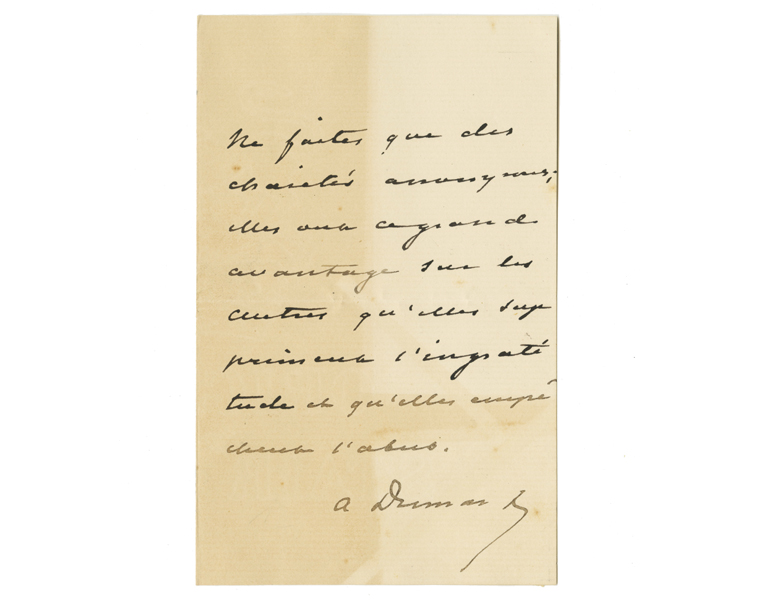 Ne faites que des
charités anonymes;
elles ont ce grand
avantage sur les
autres qu'elles sup
priment l'ingrati
tude et qu'elles empê
chent l'abus.
A Dumas f